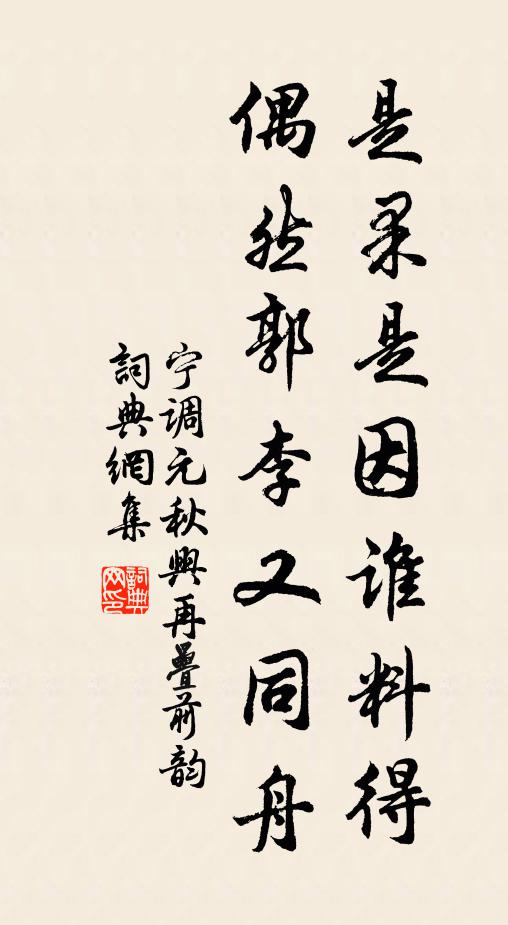 是果是因谁料得
偶然郭李又同舟
宁调元秋興再疊前韵
詞典網集
詞典
网印